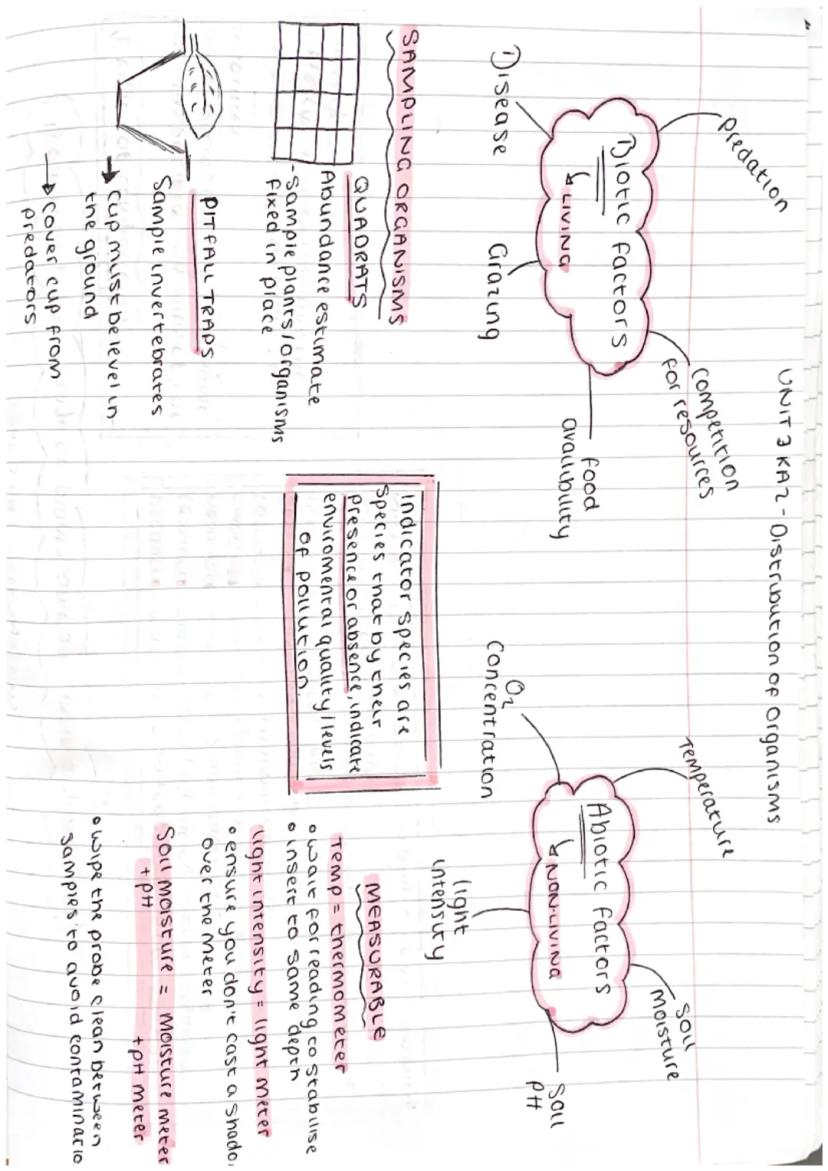 UNIT 3 KA2 - Distribution of Organisms
predation
competition
for resources
Biotic factors
LIVING
Disease
Grazing
food
availibility
Temperature
Soil
moisture
Abiotic factors
NON-LIVING
O2
concentration
light
intensity
Soil
pH
SAMPLING ORGANISMS
QUADRATS
Abundance estimate
- Sample plants/organisms
fixed in place
PITFALL TRAPS
Sample invertebrates
→ Cup must be level in
the ground
→ cover cup from
predators
Indicator species are
species that by their
presence or absence, indicate
enviromental quality/levels
of pollution.
MEASURABLE
Temp = thermometer
• wait for reading to stabilise
• insert to same depth
light intensity = light meter
• ensure you don't cast a shado
over the meter
Soil moisture = moisture meter
+ pH + pH meter
• wipe the probe clean between
samples to avoid contaminatio